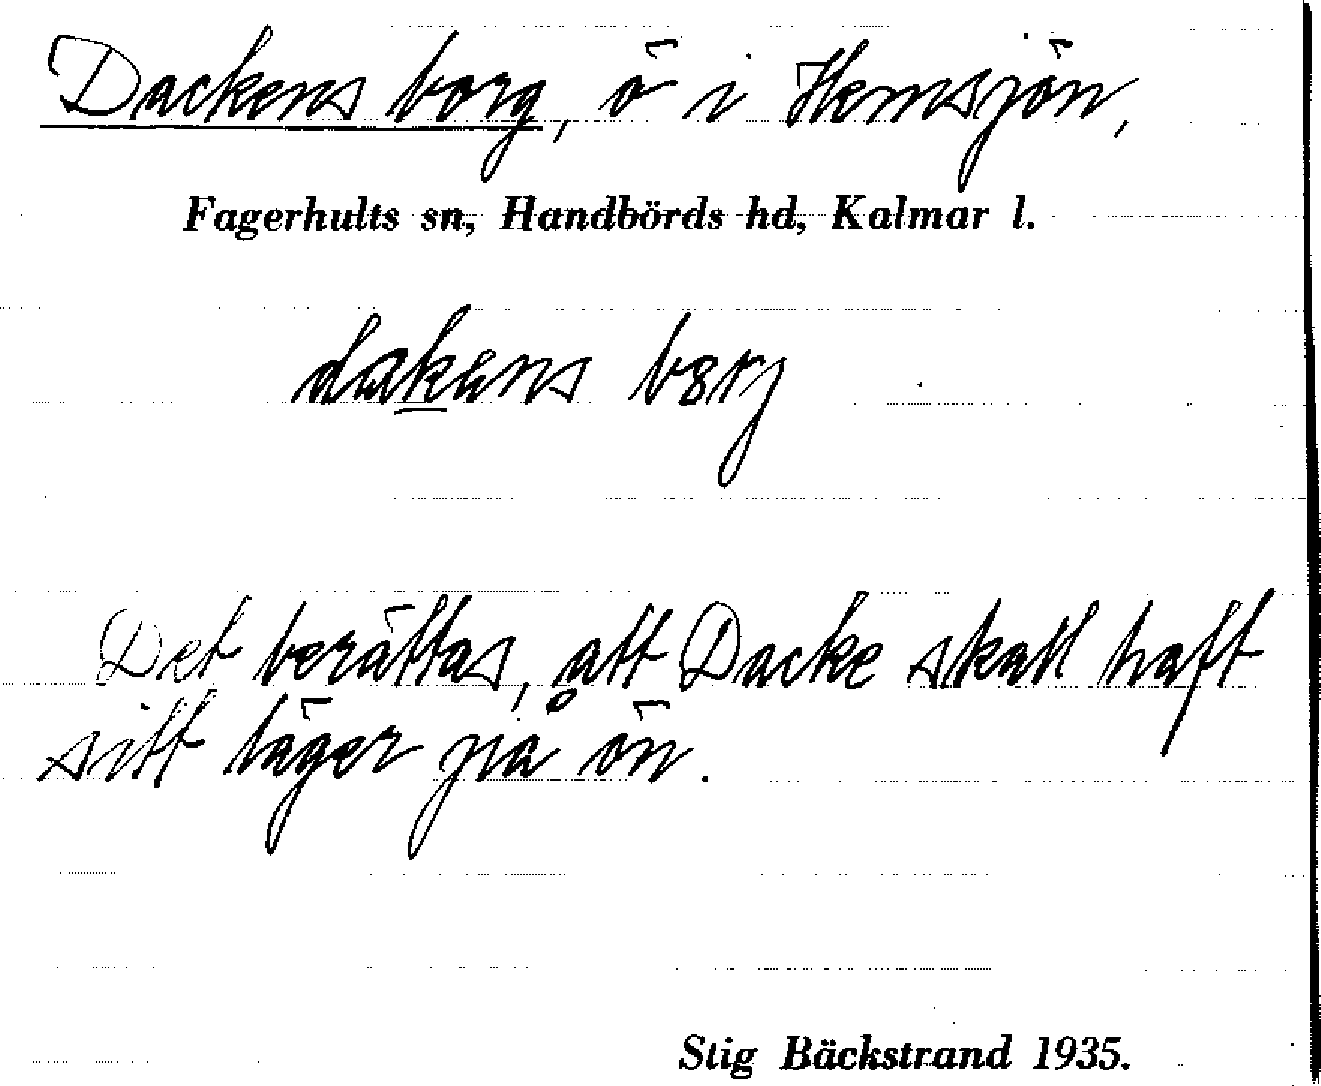 Dackens borg, ö i Hemsjön,
Fagerhults sn, Handbörds hd, Kalmar l.
dakens b8rj
Det berättas, att Dacke skall haft
sitt läger på ön.
Stig Bäckstrand 1935.